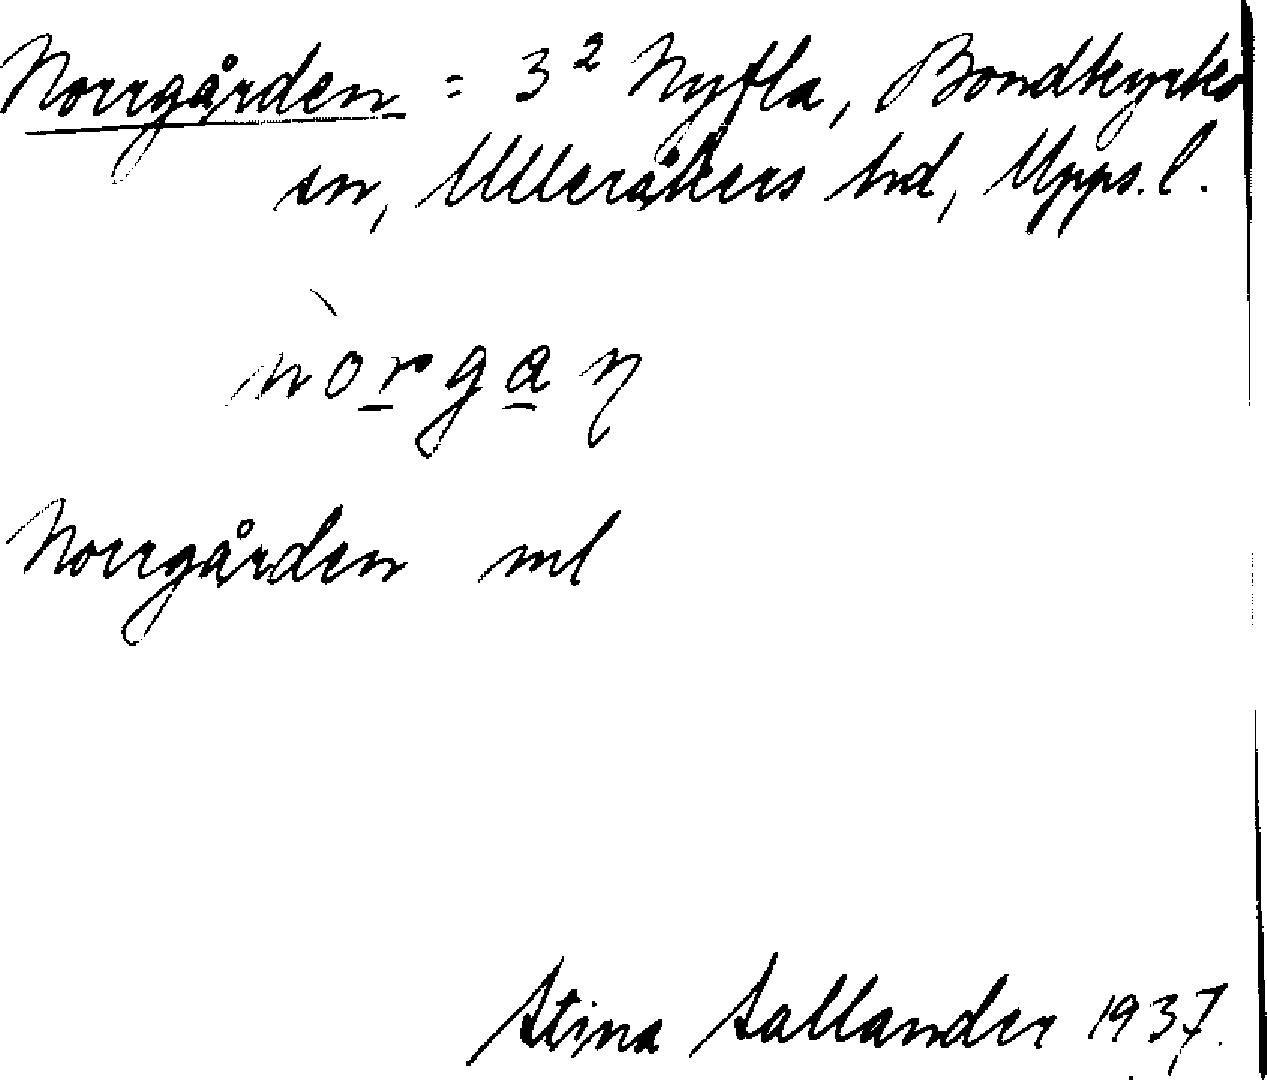 Norrgården = 3² Nyfla, Bondkyrko
sn, Ulleråkers hd, Upps. l.
nòrgaŋ
Norrgården ml
Stina Sallander 1937.